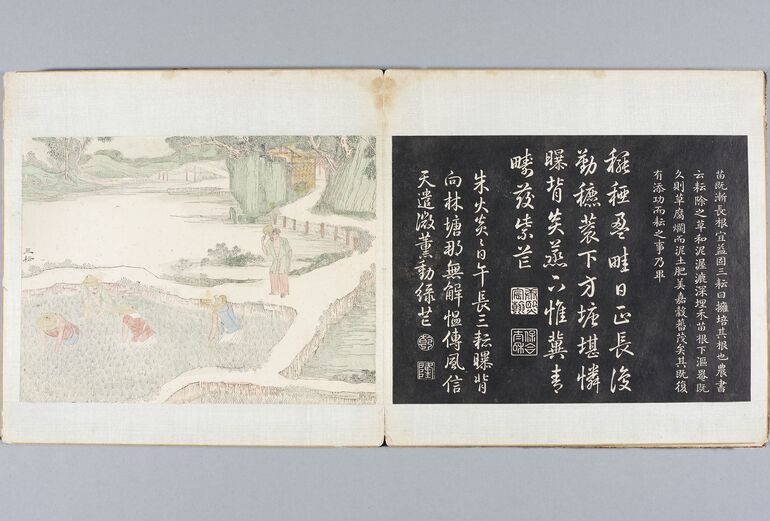 苗既漸長根宜益固三耘曰擁培其根也農書
云耘除之草和泥渥漉深埋禾苗根下漚罨既
久則草腐爛而泥土肥美嘉穀蕃茂矣其既復
有添功而耘之事乃畢
穲稏盈畦日正長復
勤穮蓘下方塘堪憐
曝背炎蒸下惟冀青
疇發紫芒
康熙宸翰
保合太和
朱火炎〻日午長三耘曝背
向林塘那無解慍傳風信
天遣微薰動綠芒
乾
隆
三耘